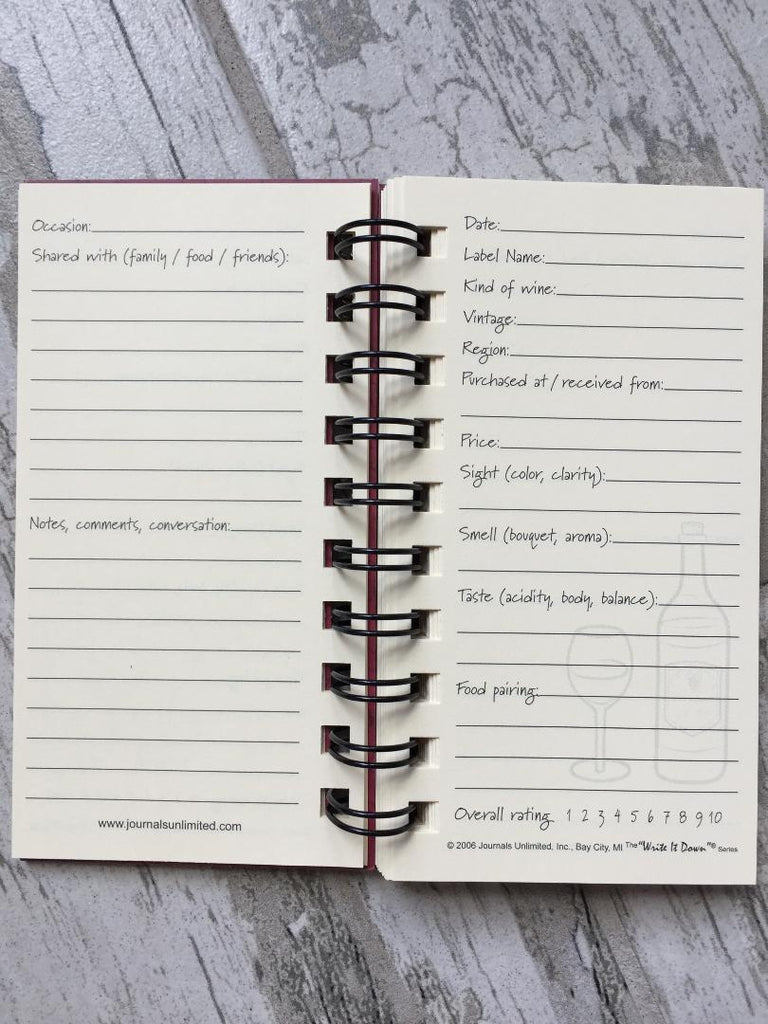 Occasion:
Shared with (family / food / friends):
Notes, comments, conversation:
www.journalsunlimited.com
Date:
Label Name:
Kind of wine:
Vintage:
Region:
Purchased at / received from:
Price:
Sight (color, clarity):
Smell (bouquet, aroma):
Taste (acidity, body, balance):
Food pairing:
Overall rating 1 2 3 4 5 6 7 8 9 10
© 2006 Journals Unlimited, Inc., Bay City, MI The "Write It Down"® Series